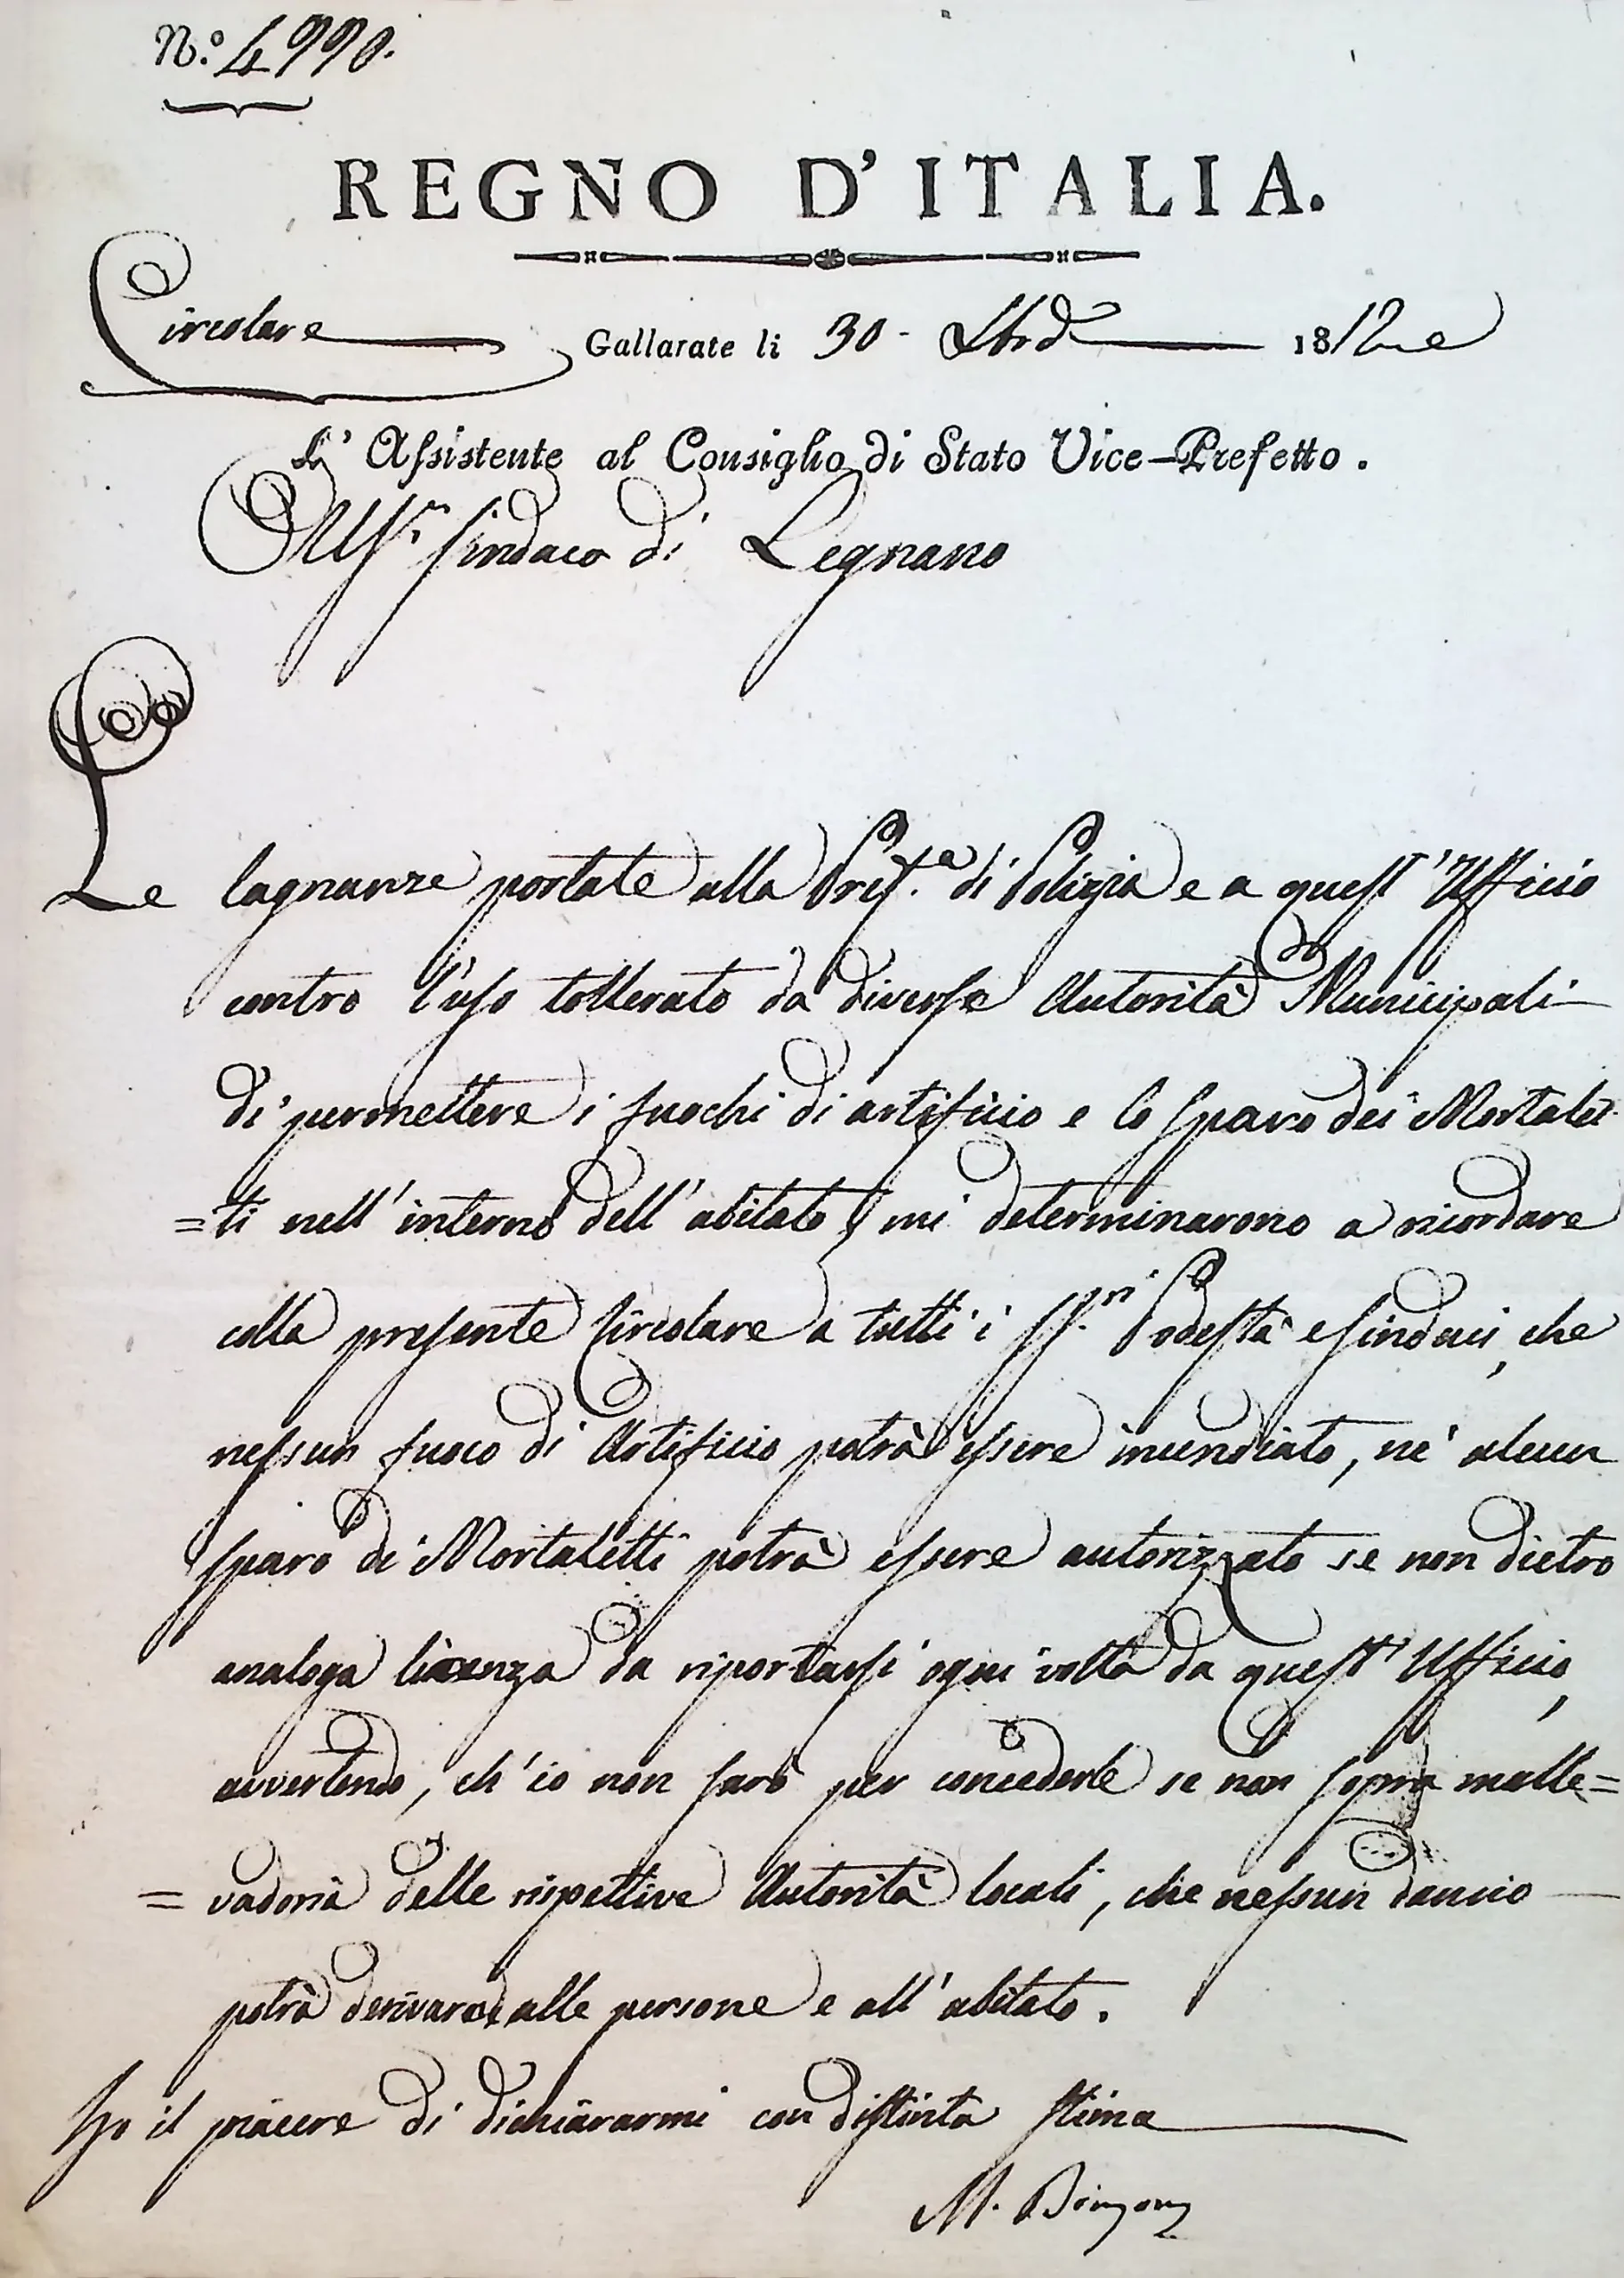 N.° 4990.
REGNO D'ITALIA.
Circolare
Gallarate li 30 - 1812
L' Assistente al Consiglio di Stato Vice-Prefetto.
Al Sig.r Sindaco di Legnano
Le lagnanze portate alla Pref.a di Polizia e a quest'Ufficio
contro l'uso tollerato da diverse Autorità Municipali
di permettere i fuochi di artificio e lo sparo dei Mortalet
=ti nell'interno dell'abitato, mi determinarono a ricordare
colla presente Circolare a tutti i SS.ri Podestà e Sindaci, che
nessun fuoco di Artificio potrà essere incendiato, nè alcun
sparo di Mortaletti potrà essere autorizzato se non dietro
analoga licenza da riportarsi ogni volta da quest'Ufficio,
avvertendo, ch'io non sarò per concederle se non sopra malle=
=vadoria delle rispettive Autorità locali, che nessun danno
potrà derivare alle persone e all'abitato.
Ho il piacere di dichiararmi con distinta stima
M.